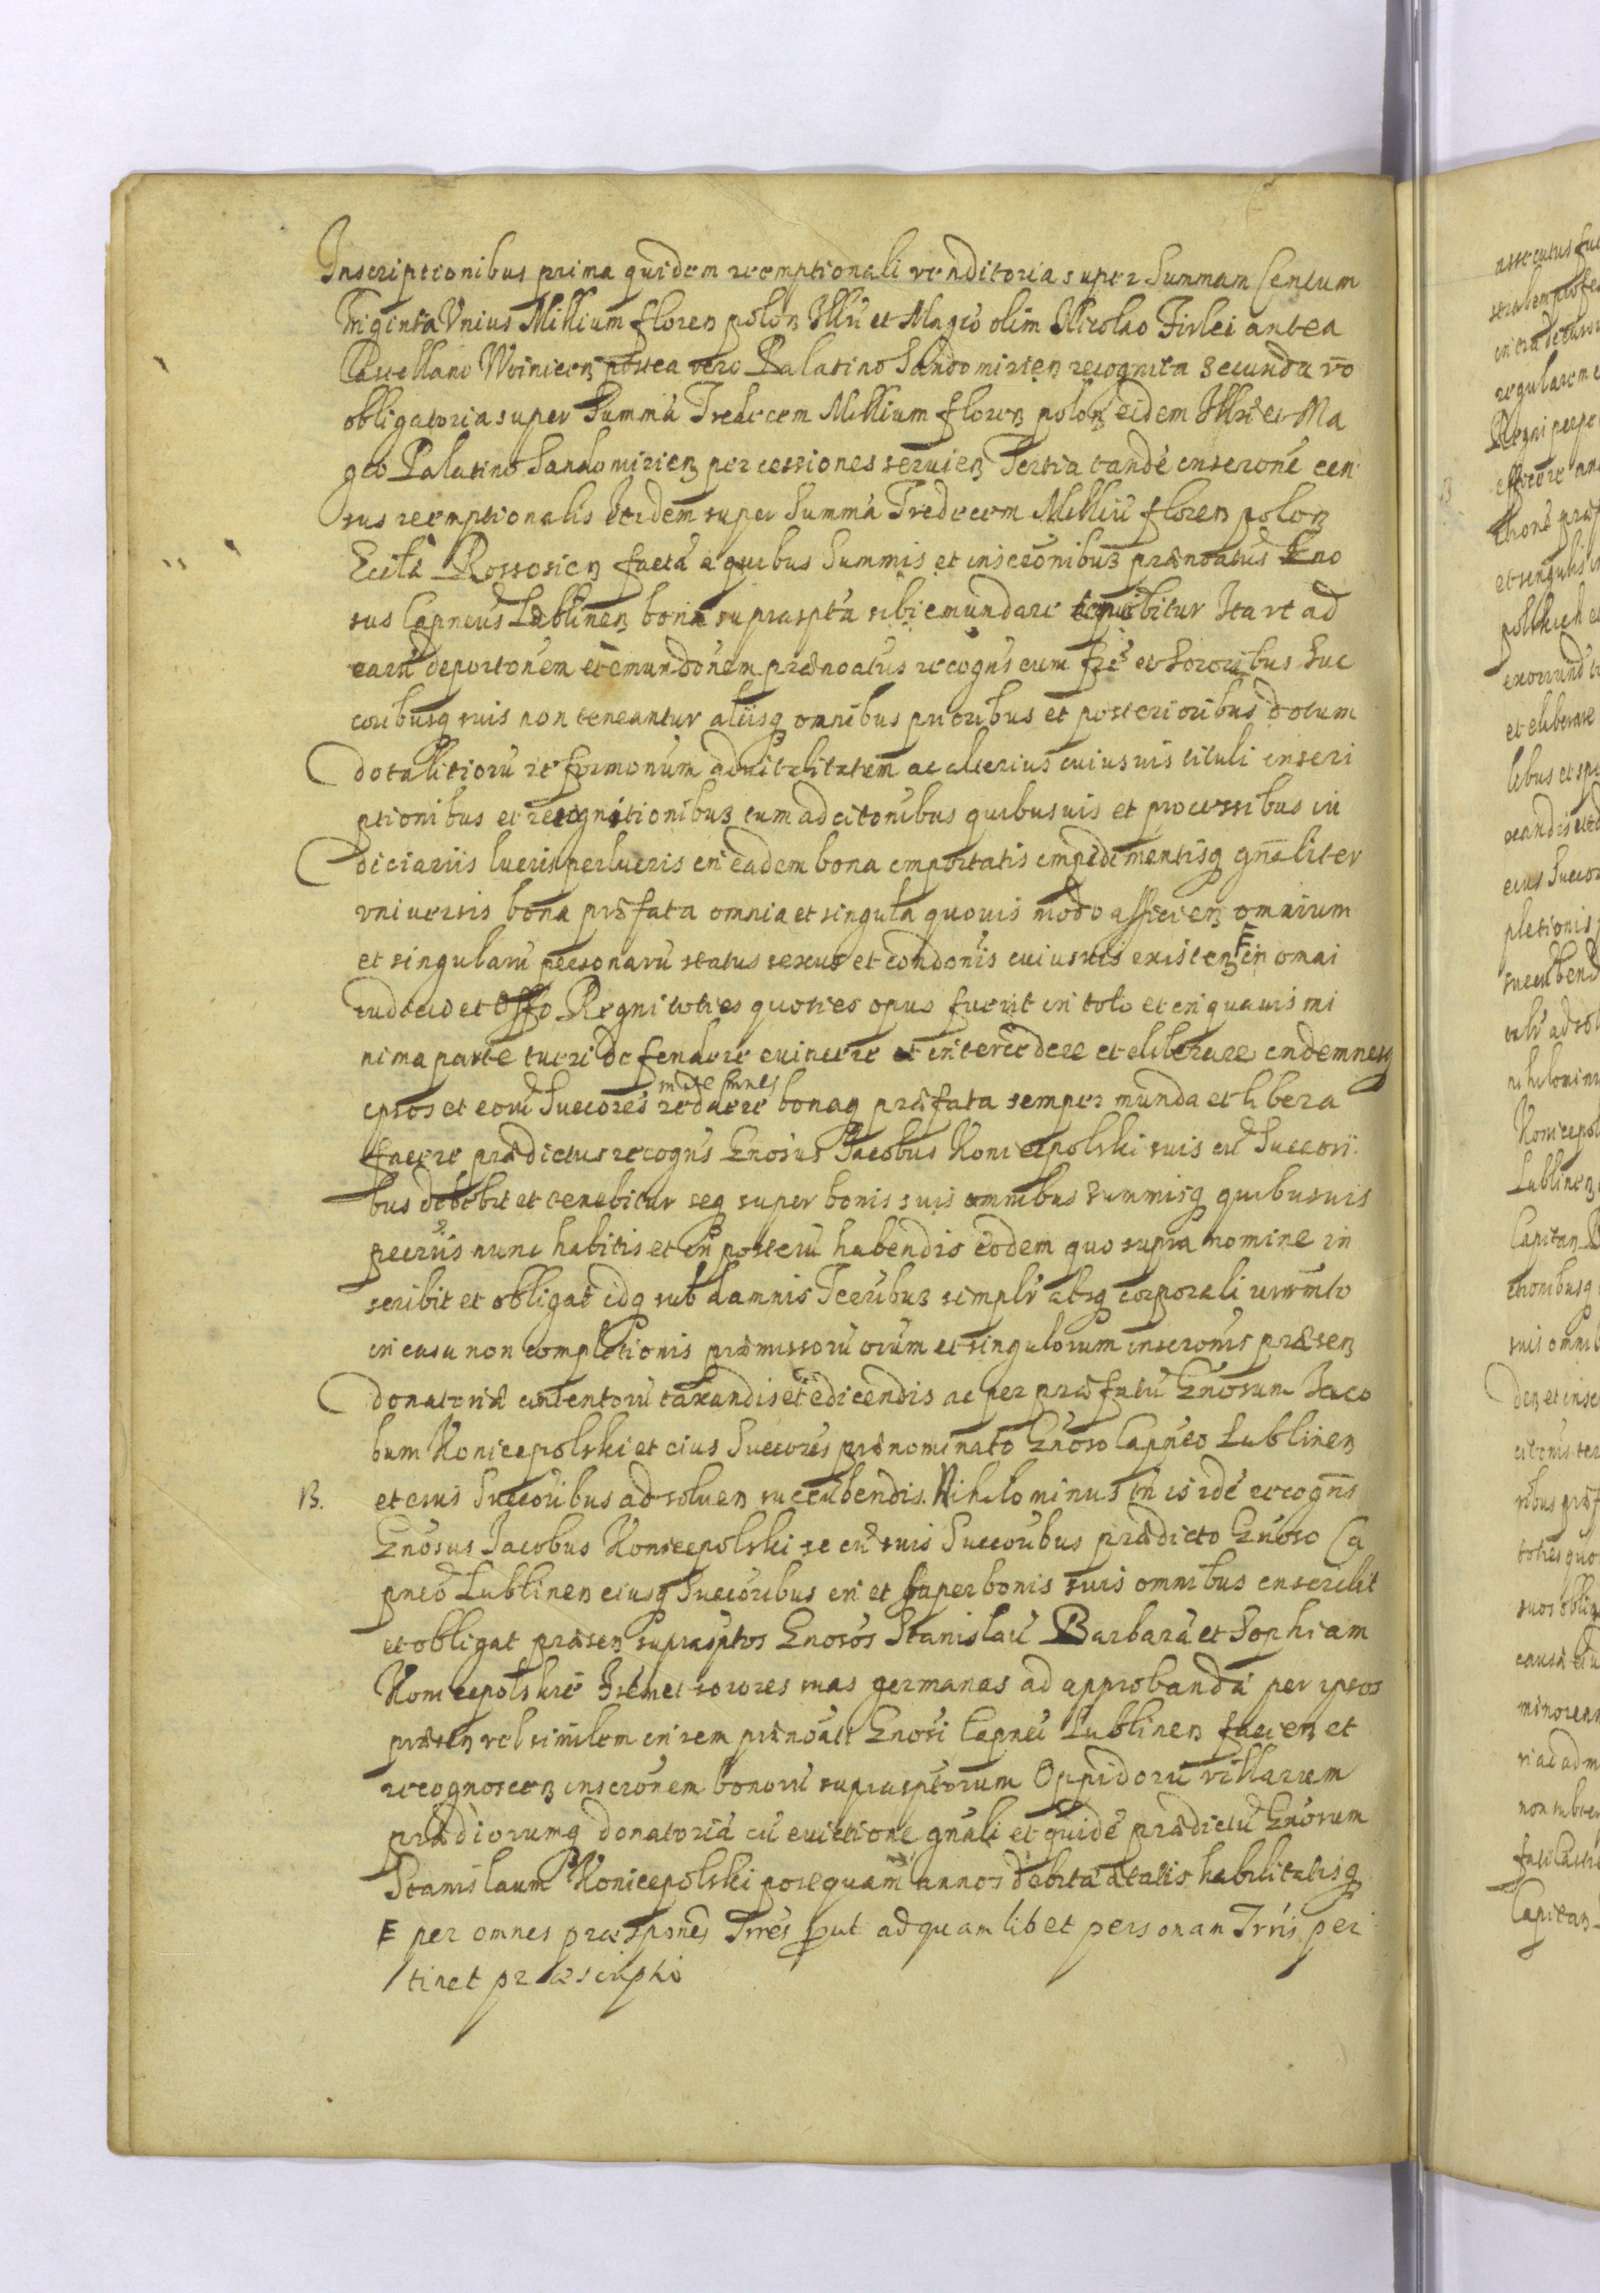 Inscriptionibus prima quidem reemptionali venditoria super Summam Centum
Triginta Unius Millium floren polon Illri et Magco olim Nicolao Firlei antea
Castellano Woinicen postea vero Palatino Sandomirien recognita secunda vo
obligatoria super Summa Tredecem Millium floren polon eidem Illri et Ma
gco Palatino Sandomirien per cessiones servien Tertia tande inscrone cen
sus reemptionalis itidem super Summa Tredecem Milliu floren polon
Eccla Rossosien facta a quibus Summis et inscronibus prænoatus Gno
sus Capneus Lublinen bona suprascpta sibi emundare tenebitur Ita vt ad
earu deportonem et emundonem prænoatus recogns cum fre et Sororibus Suc
coribusq suis non teneantur aliisq omnibus prioribus et posterioribus dotum
dotalitioru reformonum advitalitatem ac alterius cuiusvis tituli inscri
ptionibus et recognitionibus cum adcitonibus quibusuis et processibus iu
diciariis lucris perlucris in eadem bona importatis impedimentisq gnaliter
vniuersis bona præfata omnia et singula quouis modo afficien omnium
et singularu personaru status sexus et condonis cuiusuis existen F in omni
iudicio et Offo Regni toties quoties opus fuerit in toto et in quauis mi
nima parte tueri defendere euincere et intercedere et eliberare indemnes
ipsos et eoru Succores reddere bonaq præfata semper munda et libera
facere prædictus recogns Gnosus Jacobus Koniecpolski suis cu Succori
bus debebit et tenebitur seq super bonis suis omnibus summisq quibusuis
pecriis nunc habitis et in posteru habendis eodem quo supra nomine in
scribit et obligat idq sub damnis Terribus simplr absq corporali iurmto
in casu non completionis præmissoru oium et singulorum inscronis præsen
donatoriæ contentoru taxandis et edicendis ac per præfatu Gnosum Jaco
bum Koniecpolski et eius Succores prænominato Gnoso Capneo Lublinen
B. et eius Succoribus ad soluen succubendis. Nihilominus in is ide recogns
Gnosus Jacobus Koniecpolski se cu suis Succoribus prædicto Gnoso Ca
pneo Lublinen eiusq Succoribus in et super bonis suis omnibus inscribit
et obligat præsen suprascptos Gnosos Stanislau Barbara et Sophiam
Koniecpolskie frem et sorores suas germanas ad approbanda per ipsos
præsen vel similem in rem prænoati Gnosi Capnei Lublinen facien et
recognoscen inscronem bonoru suprascptorum Oppidoru villarum
prædiorumq donatoria cu euictione gnali et quide prædictu Gnosum
Stanislaum Koniecpolski posequam annos debita ætatis habilitatisq
F per omnes præspones Trres put ad quamlibet personam Trris per
tinet præscriptio